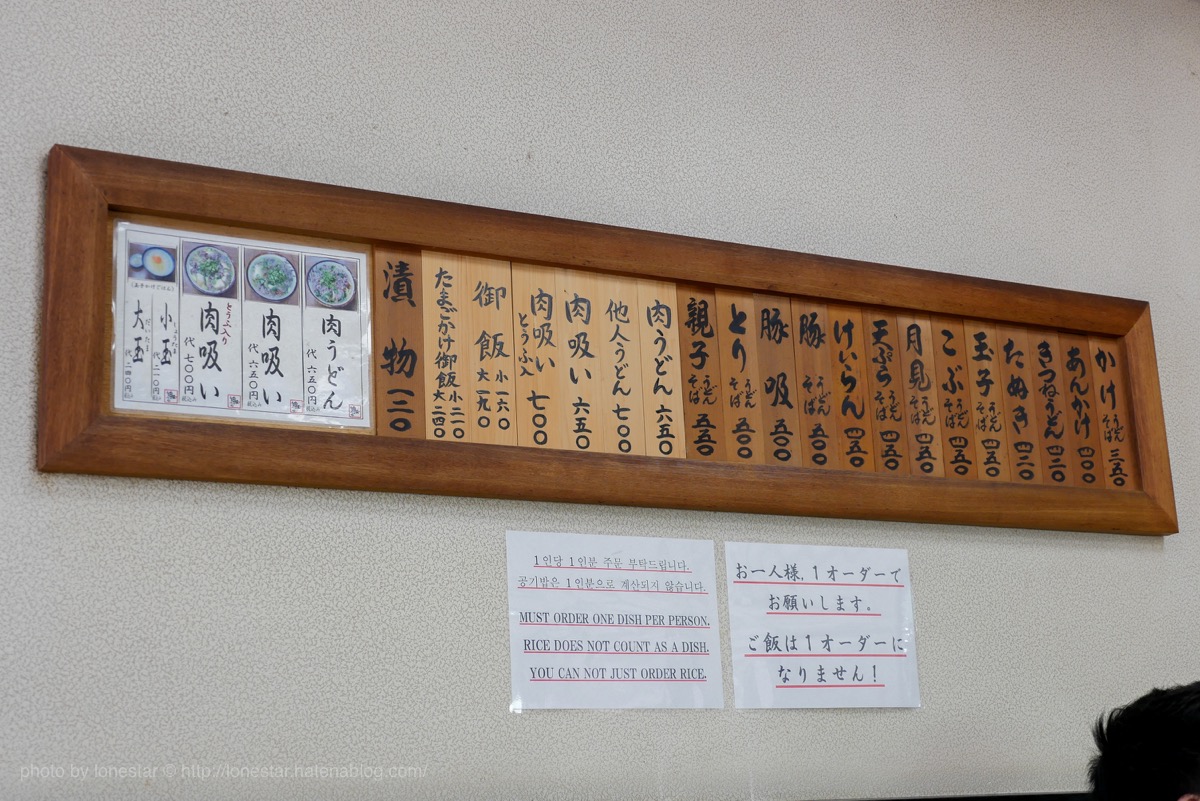 かけ うどん そば 三五〇
あんかけ 四〇〇
きつねうどん 四二〇
たぬき 四二〇
玉子 うどん そば 四五〇
こぶ うどん そば 四五〇
月見 うどん そば 四五〇
天ぷら うどん そば 四五〇
けいらん 四五〇
豚 うどん そば 五〇〇
豚吸 五〇〇
とり うどん そば 五〇〇
親子 うどん そば 五五〇
肉うどん 六五〇
他人うどん 七〇〇
肉吸い 六五〇
肉吸い とうふ入 七〇〇
御飯 小 一六〇 大 一九〇
たまごかけ御飯 小 二一〇 大 二四〇
漬物 一二〇
肉うどん
代 六五〇円 税込み
肉吸い
代 六五〇円 税込み
とうふ入り
肉吸い
代 七〇〇円 税込み
小玉
代 二一〇円 税込み
大玉
代 二四〇円 税込み
1인당 1인분 주문 부탁드립니다.
공기밥은 1인분으로 계산되지 않습니다.
MUST ORDER ONE DISH PER PERSON.
RICE DOES NOT COUNT AS A DISH.
YOU CAN NOT JUST ORDER RICE.
お一人様,1オーダーで
お願いします。
ご飯は1オーダーに
なりません!
photo by lonestar © http://lonestar.hatenablog.com/